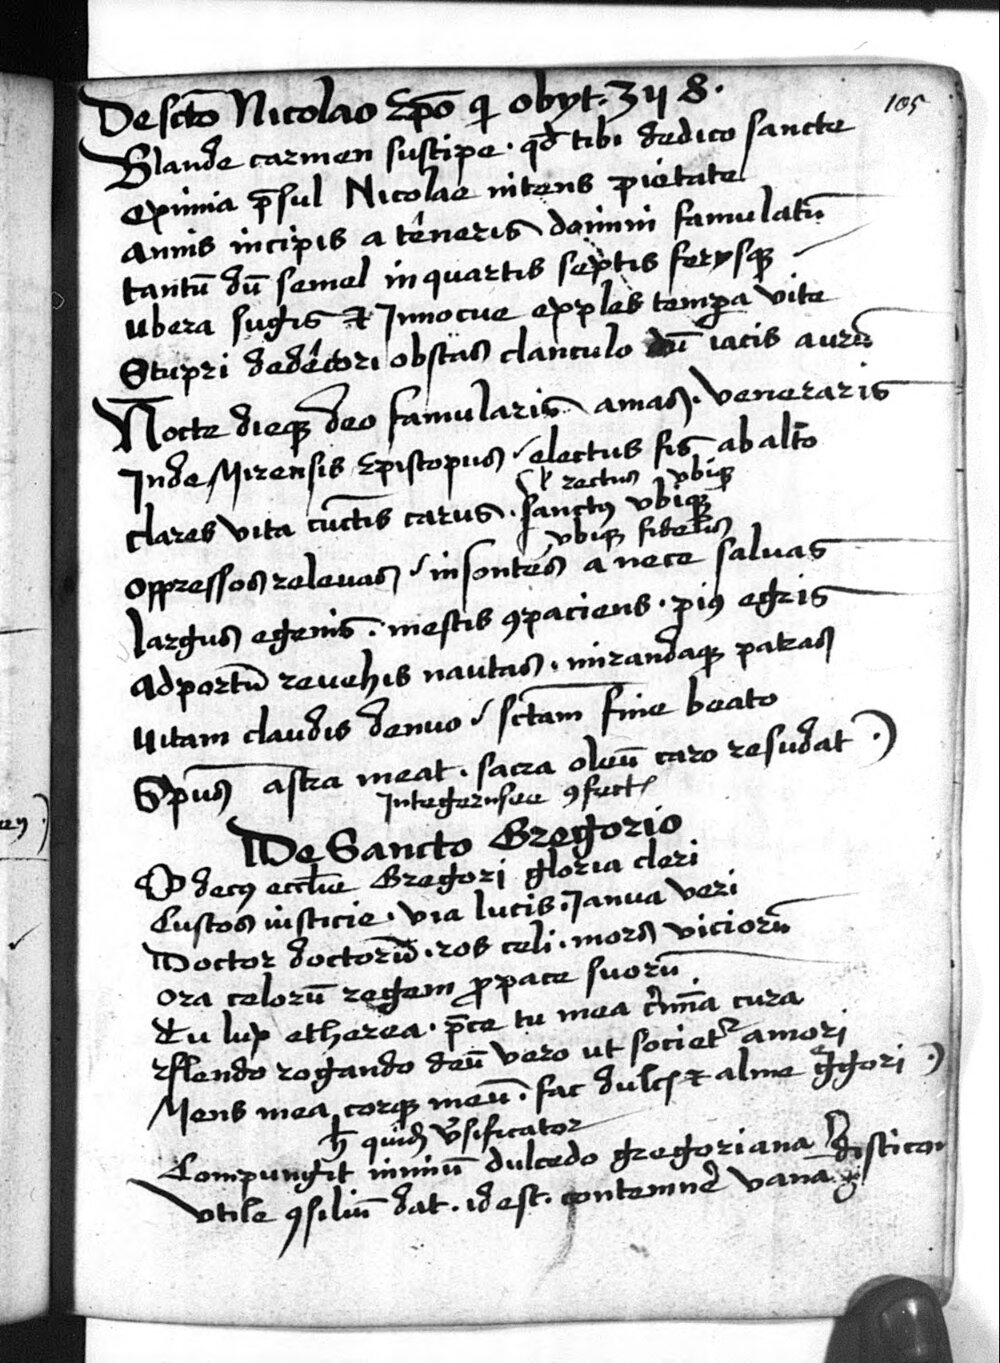 De scto Nicolao Epo qi obyt. 3 4 8.
105
Blande carmen suscipe. qd tibi dedico sancte
eximia psul Nicolae nitens pietate
annis incipis a teneris domini famulatu
tantu du semel in quartis septis ferysq
ubera sugis et Innocue exples tempa vite
Stupri dedecori obstas clanculo du iacis auru
Nocte dieq deo famularis amas. veneraris
Inde Mirensis Episcopus electus fis ab alto
l rectus vbiq
clares vita cuctis carus. sanctus vbiq
vbiq fidelis
oppressos relevas insontes a nece salvas
largus egenis. mestis 9paciens. pius egris
ad portu revehis nautas. mirandaq patras
vitam claudis denuo sctam fine beato
Spus astra meat. sacra oleu caro resudat
In tegernsee 9fect
De Sancto Gregorio
O decus ecclie Gregori gloria cleri
Custos iusticie. via lucis. Ianua veri
Doctor doctoru. ros celi. mors vicioru
ora celoru regem p pace suoru
Tu lux etherea. pce tu mea cimia cura
flendo rogando deu vero ut societ amori
Mens mea corq meu. fac dulcis et alme ggori
h quid vsificator
Compungit nimiu dulcedo gregoriana disticon
vtile 9siliu dat. id est. contemne vana